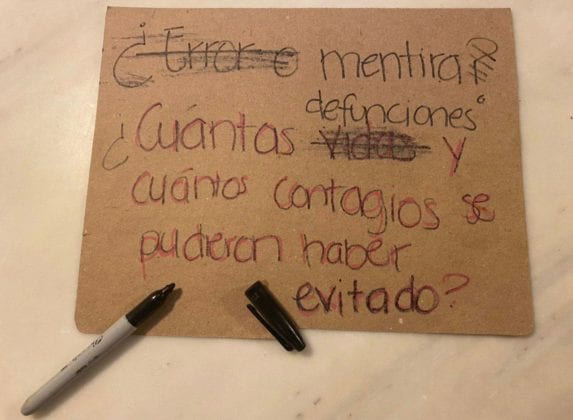 ¿Error o mentira?
defunciones
¿Cuántas vidas y
cuántos contagios se
pudieron haber
evitado?